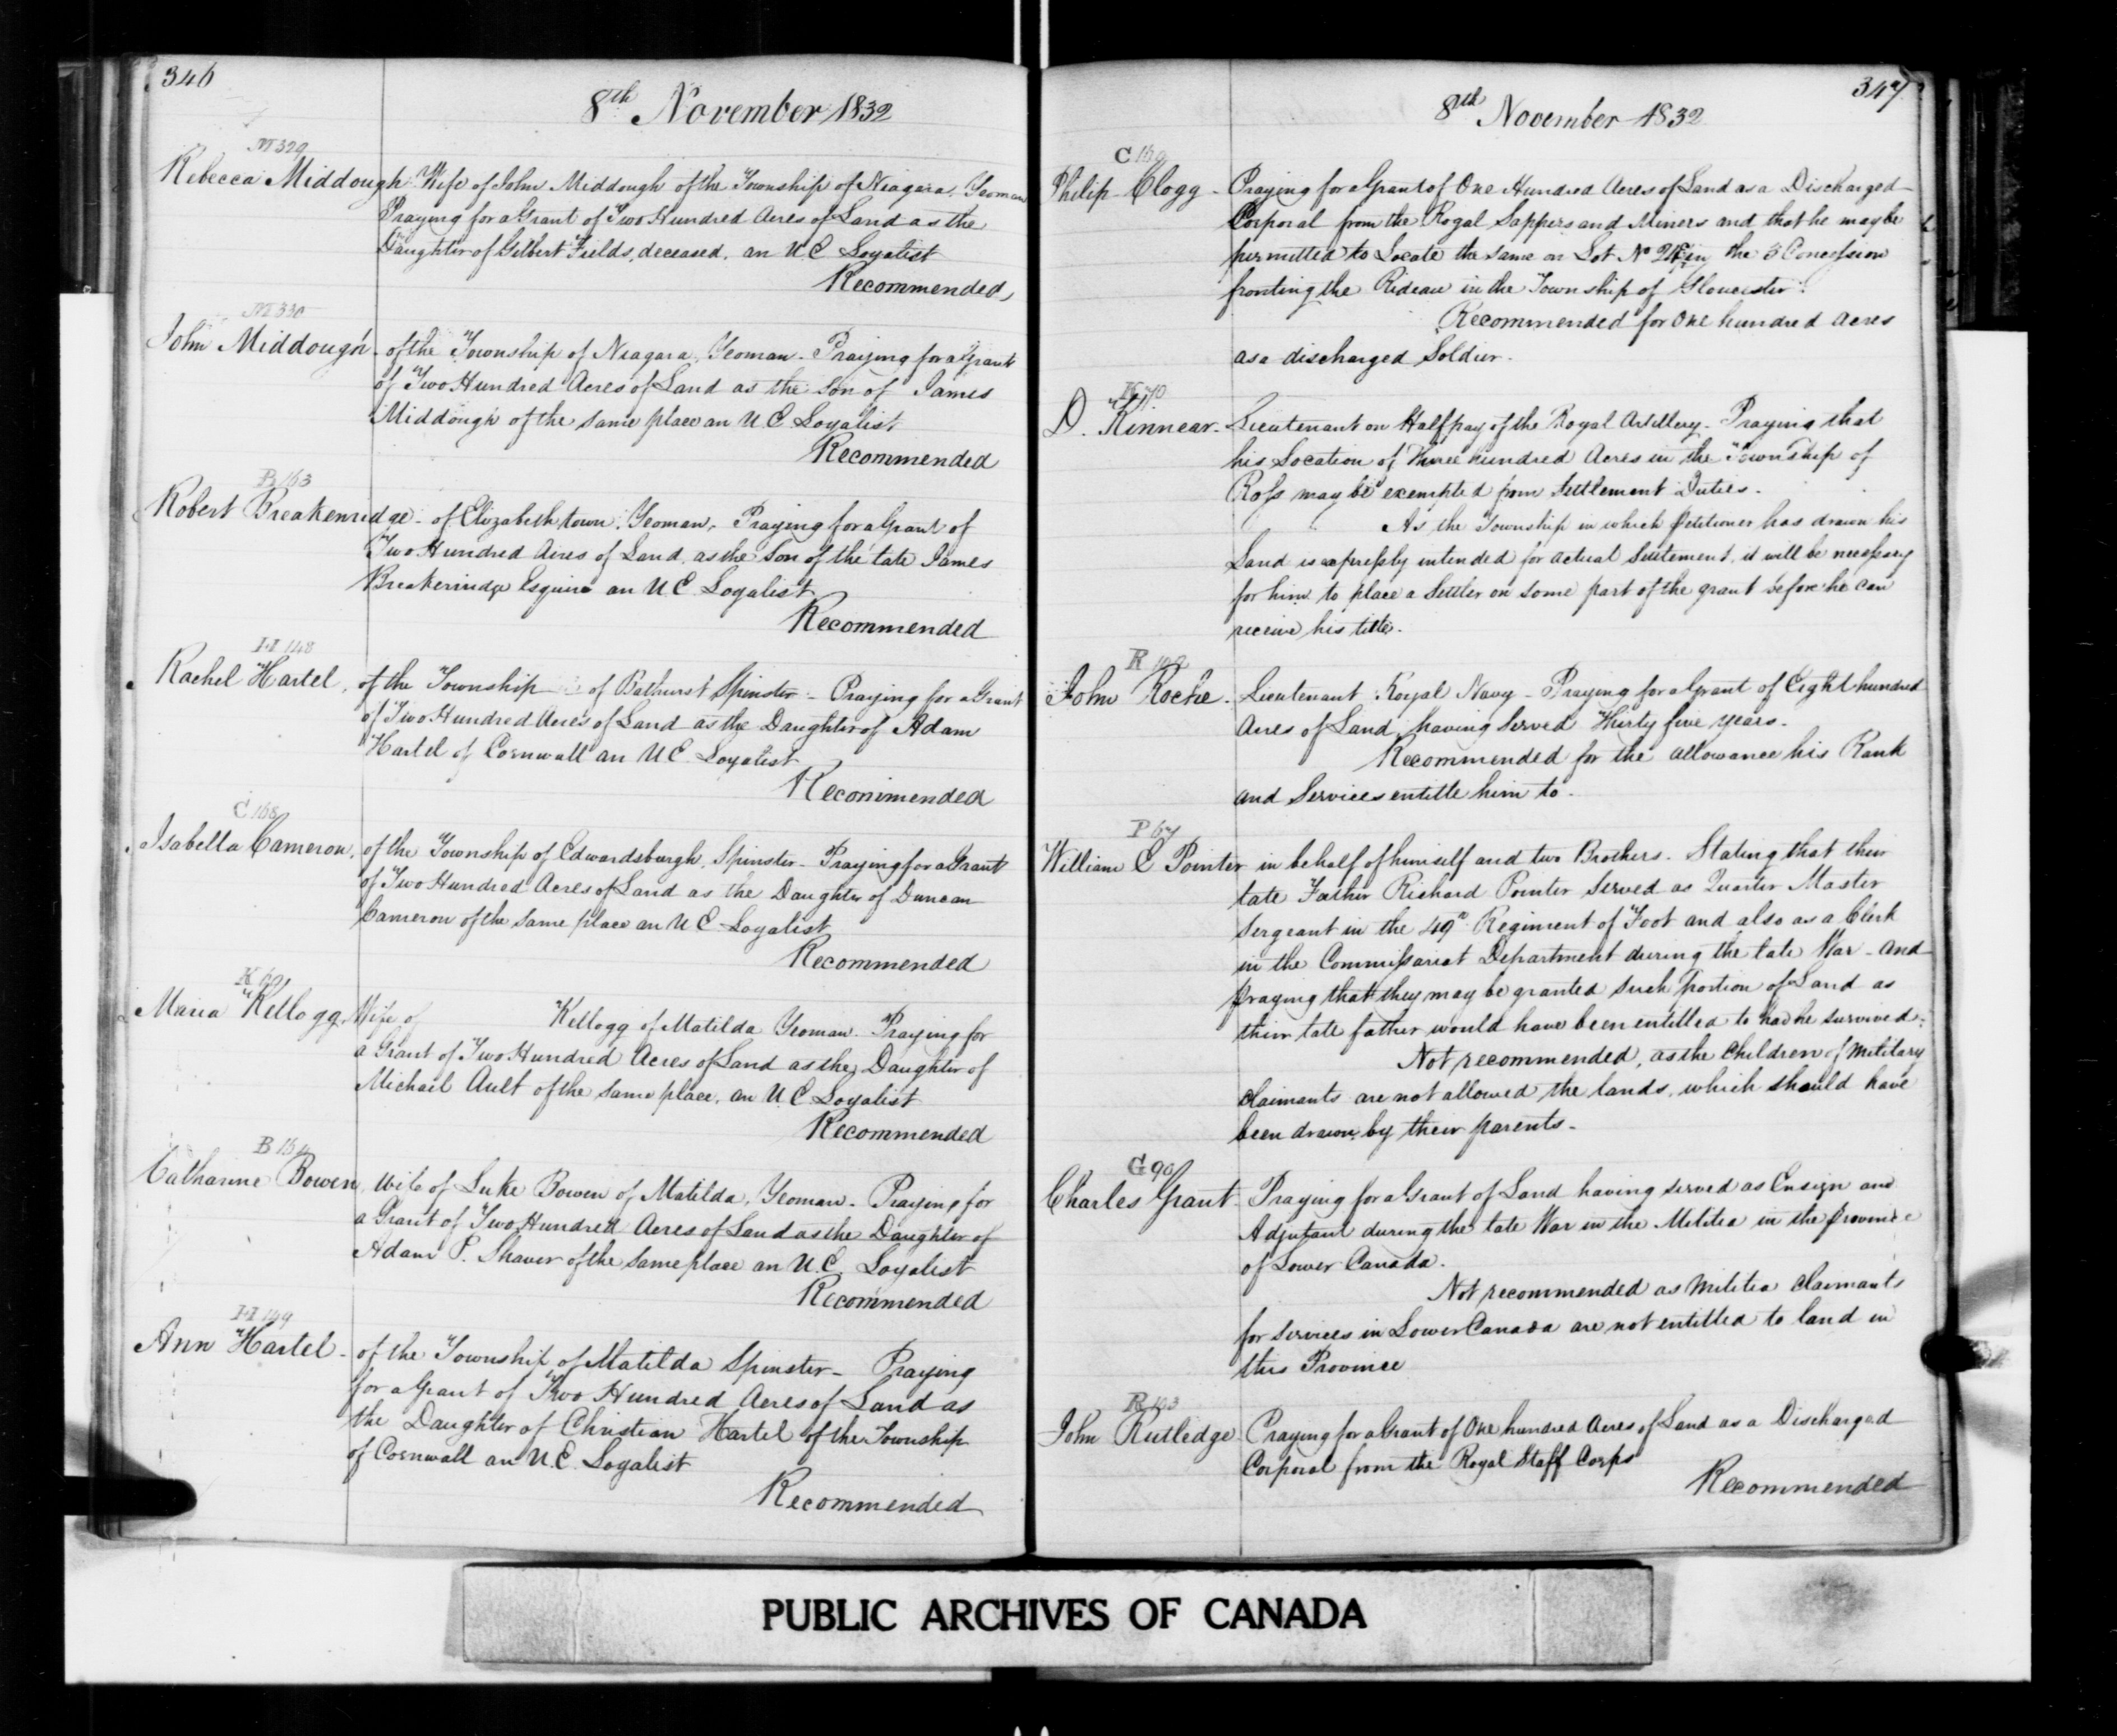 346
8th November 1832
M 329
Rebecca Middough Wife of John Middough of the Township of Niagara, Yeoman
Praying for a Grant of Two Hundred Acres of Land as the
Daughter of Gilbert Fields, deceased, an U.E Loyalist
Recommended,
M 330
John Middough - of the Township of Niagara, Yeoman - Praying for a Grant
of Two Hundred Acres of Land as the Son of James
Middough of the same place an U.E. Loyalist
Recommended
B 163
Robert Breakenridge - of Elizabethtown, Yeoman, Praying for a Grant of
Two Hundred Acres of Land, as the Son of the late James
Breakenridge Esquire an U.E. Loyalist
Recommended
H 148
Rachel Hartel, of the Township of Bathurst Spinster - Praying for a Grant
of Two Hundred Acres of Land as the Daughter of Adam
Hartel of Cornwall an U E Loyalist
Recommended
C 168
Isabella Cameron, of the Township of Edwardsburgh, Spinster - Praying for a Grant
of Two Hundred Acres of Land as the Daughter of Duncan
Cameron of the same place an U E Loyalist
Recommended
K 69
Maria Kellogg, Wife of Kellogg of Matilda Yeoman. Praying for
a Grant of Two Hundred Acres of Land as the Daughter of
Michael Ault of the same place, an U.E. Loyalist
Recommended
B 164
Catharine Bowen, wife of Luke Bowen of Matilda, Yeoman - Praying for
a Grant of Two Hundred Acres of Land as the Daughter of
Adam P. Shaver of the same place an U.E. Loyalist
Recommended
H 149
Ann Hartel - of the Township of Matilda Spinster - Praying
for a Grant of Two Hundred Acres of Land as
the Daughter of Christian Hartel of the Township
of Cornwall an U.E. Loyalist
Recommended
347
8th November 1832
C 169
Philip Clogg - Praying for a Grant of One Hundred Acres of Land as a Discharged
Corporal from the Royal Sappers and Miners and that he may be
permitted to Locate the same on Lot No in the 3 Concession
fronting the Rideau in the Township of Gloucester.
Recommended for One hundred Acres
as a discharged Soldier.
K 70
D. Kinnear - Lieutenant on Half pay of the Royal Artillery - Praying that
his Location of Three hundred Acres in the Township of
Ross may be exempted from Settlement Duties.
As the Township in which Petitioner has drawn his
Land is expressly intended for actual Settlement, it will be necessary
for him to place a Settler on some part of the grant before he can
receive his title.
R 102
John Roche - Lieutenant Royal Navy - Praying for a Grant of Eight hundred
Acres of Land, having Served Thirty five years.
Recommended for the allowance his Rank
and Services entitle him to.
P 67
William C Pointer in behalf of himself and two Brothers. Stating that their
late Father Richard Pointer Served as Quarter Master
Sergeant in the 49th Regiment of Foot and also as a Clerk
in the Commissariat Department during the late War - and
praying that they may be granted such portion of Land as
their late father would have been entitled to had he survived.
Not recommended, as the Children of Military
claimants are not allowed the lands, which should have
been drawn by their parents -
G 90
Charles Grant - Praying for a Grant of Land having served as Ensign and
Adjutant during the late War in the Militia in the province
of Lower Canada.
Not recommended as Militia Claimants
for services in Lower Canada are not entitled to land in
this Province
R 103
John Rutledge - Praying for a Grant of One hundred Acres of Land as a Discharged
Corporal from the Royal Staff Corps
Recommended
PUBLIC ARCHIVES OF CANADA